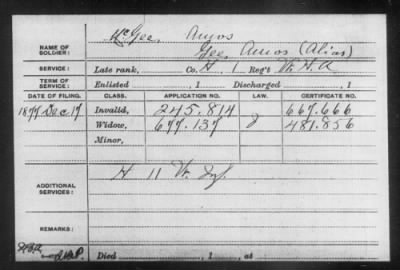 McGee, Amos
NAME OF SOLDIER: Gee, Amos (Alias)
SERVICE: Late rank, Co. H, 1 Reg't Vt. H.A
TERM OF SERVICE: Enlisted , 1 Discharged , 1
DATE OF FILING. CLASS. APPLICATION NO. LAW. CERTIFICATE NO.
1877 Dec. 17 Invalid, 245.814 667.666
Widow, 677.137 481.856
Minor,
ADDITIONAL SERVICES: H 11 Vt. Inf.
REMARKS:
Died , 1 , at